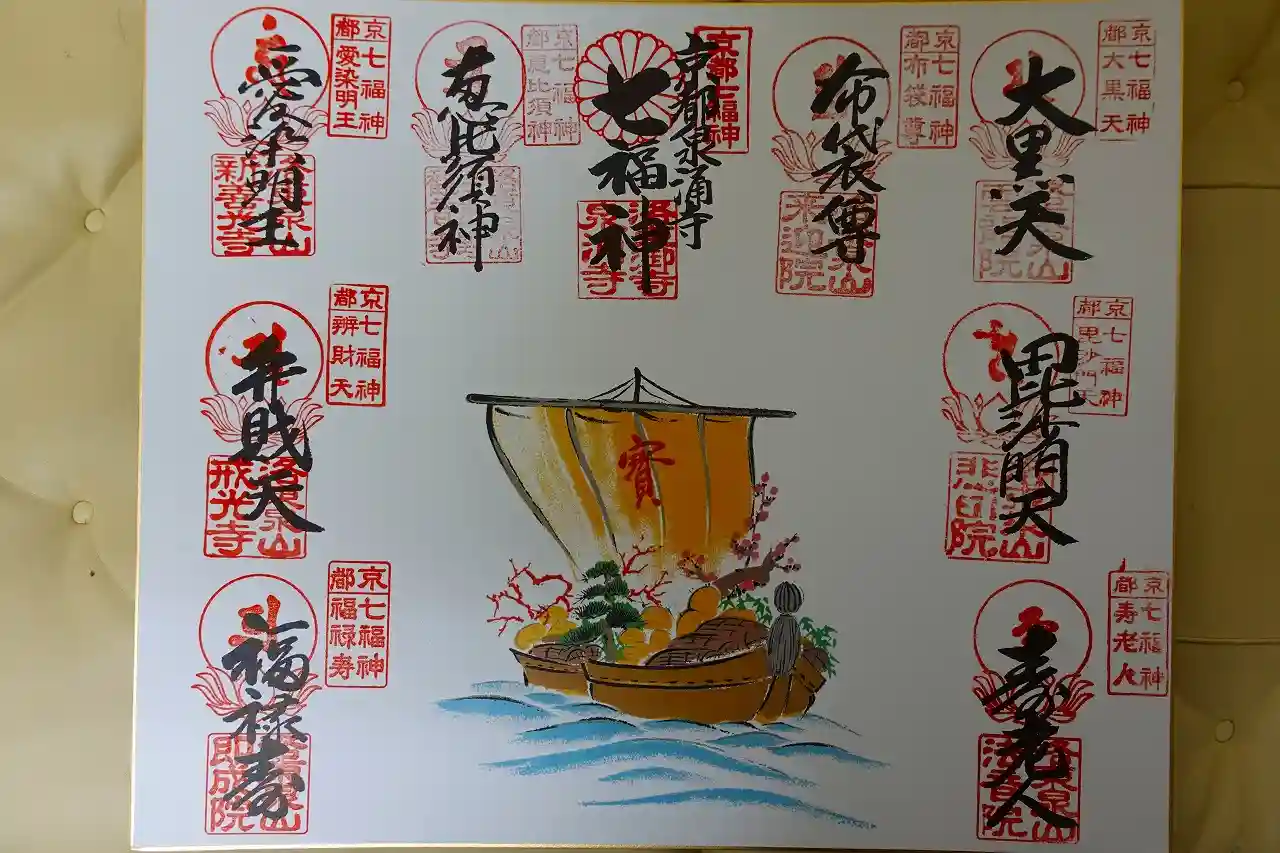 京都
七福神
大黒天
大黒天
京都
七福神
布袋尊
布袋尊
来迎院
京都七福神
京都泉涌寺
七福神
京都
七福神
恵比須神
恵比須神
京都
七福神
愛染明王
愛染明王
新善光寺
京都
七福神
毘沙門天
毘沙門天
悲田院
京都
七福神
辨財天
弁財天
戒光寺
寳
京都
七福神
寿老人
寿老人
法音院
京都
七福神
福禄寿
福禄寿
即成院